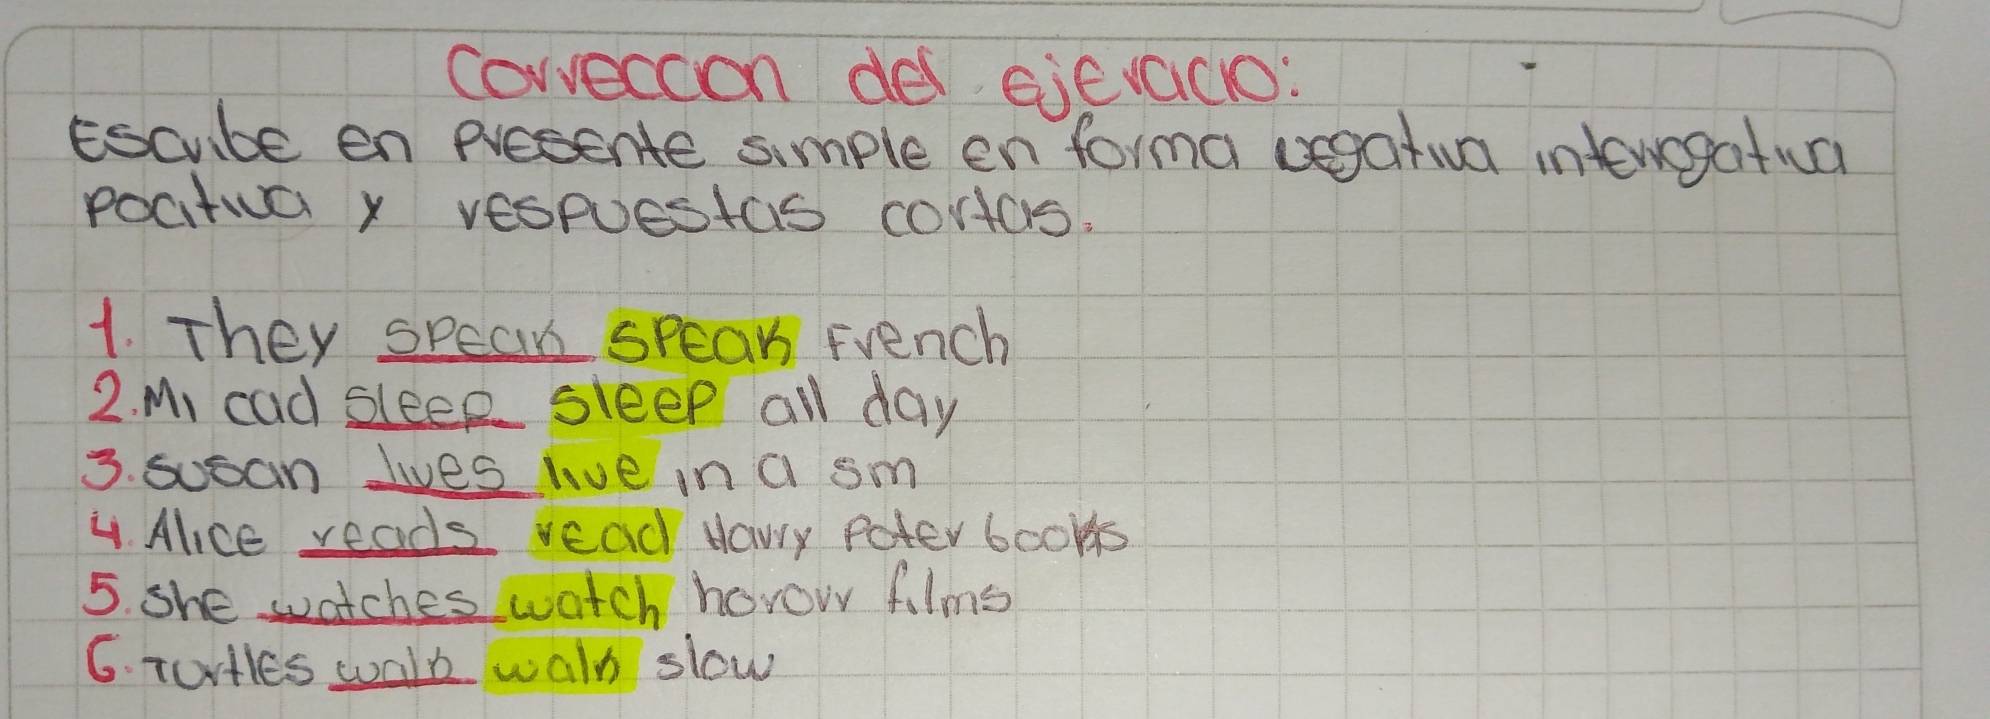 Correccion del ejercicio:
Escribe en presente simple en forma negativa interrogativa
pocitiva y respuestas cortas.
1. They speak speak French
2. Mi cad sleep sleep all day
3. Susan lives live in a sm
4. Alice reads read Harry Poter books
5. She watches watch horowr films
6. Turtles walk walk slow